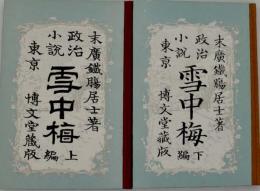 末廣鐵膓居士著
政治小説
雪中梅 上編
東京 博文堂藏版
末廣鐵膓居士著
政治小説
雪中梅 下編
東京 博文堂藏版